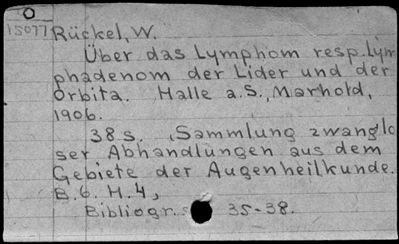 15077 Rückel, W.
Über das Lymphom resp. Lym
phadenom der Lider und der
Orbita. Halle a.S., Marhold,
1906.
38 s. (Sammlung zwanglo
ser Abhandlungen aus dem
Gebiete der Augenheilkunde.
B. 6. H. 4,
Bibliogr. s 35-38.